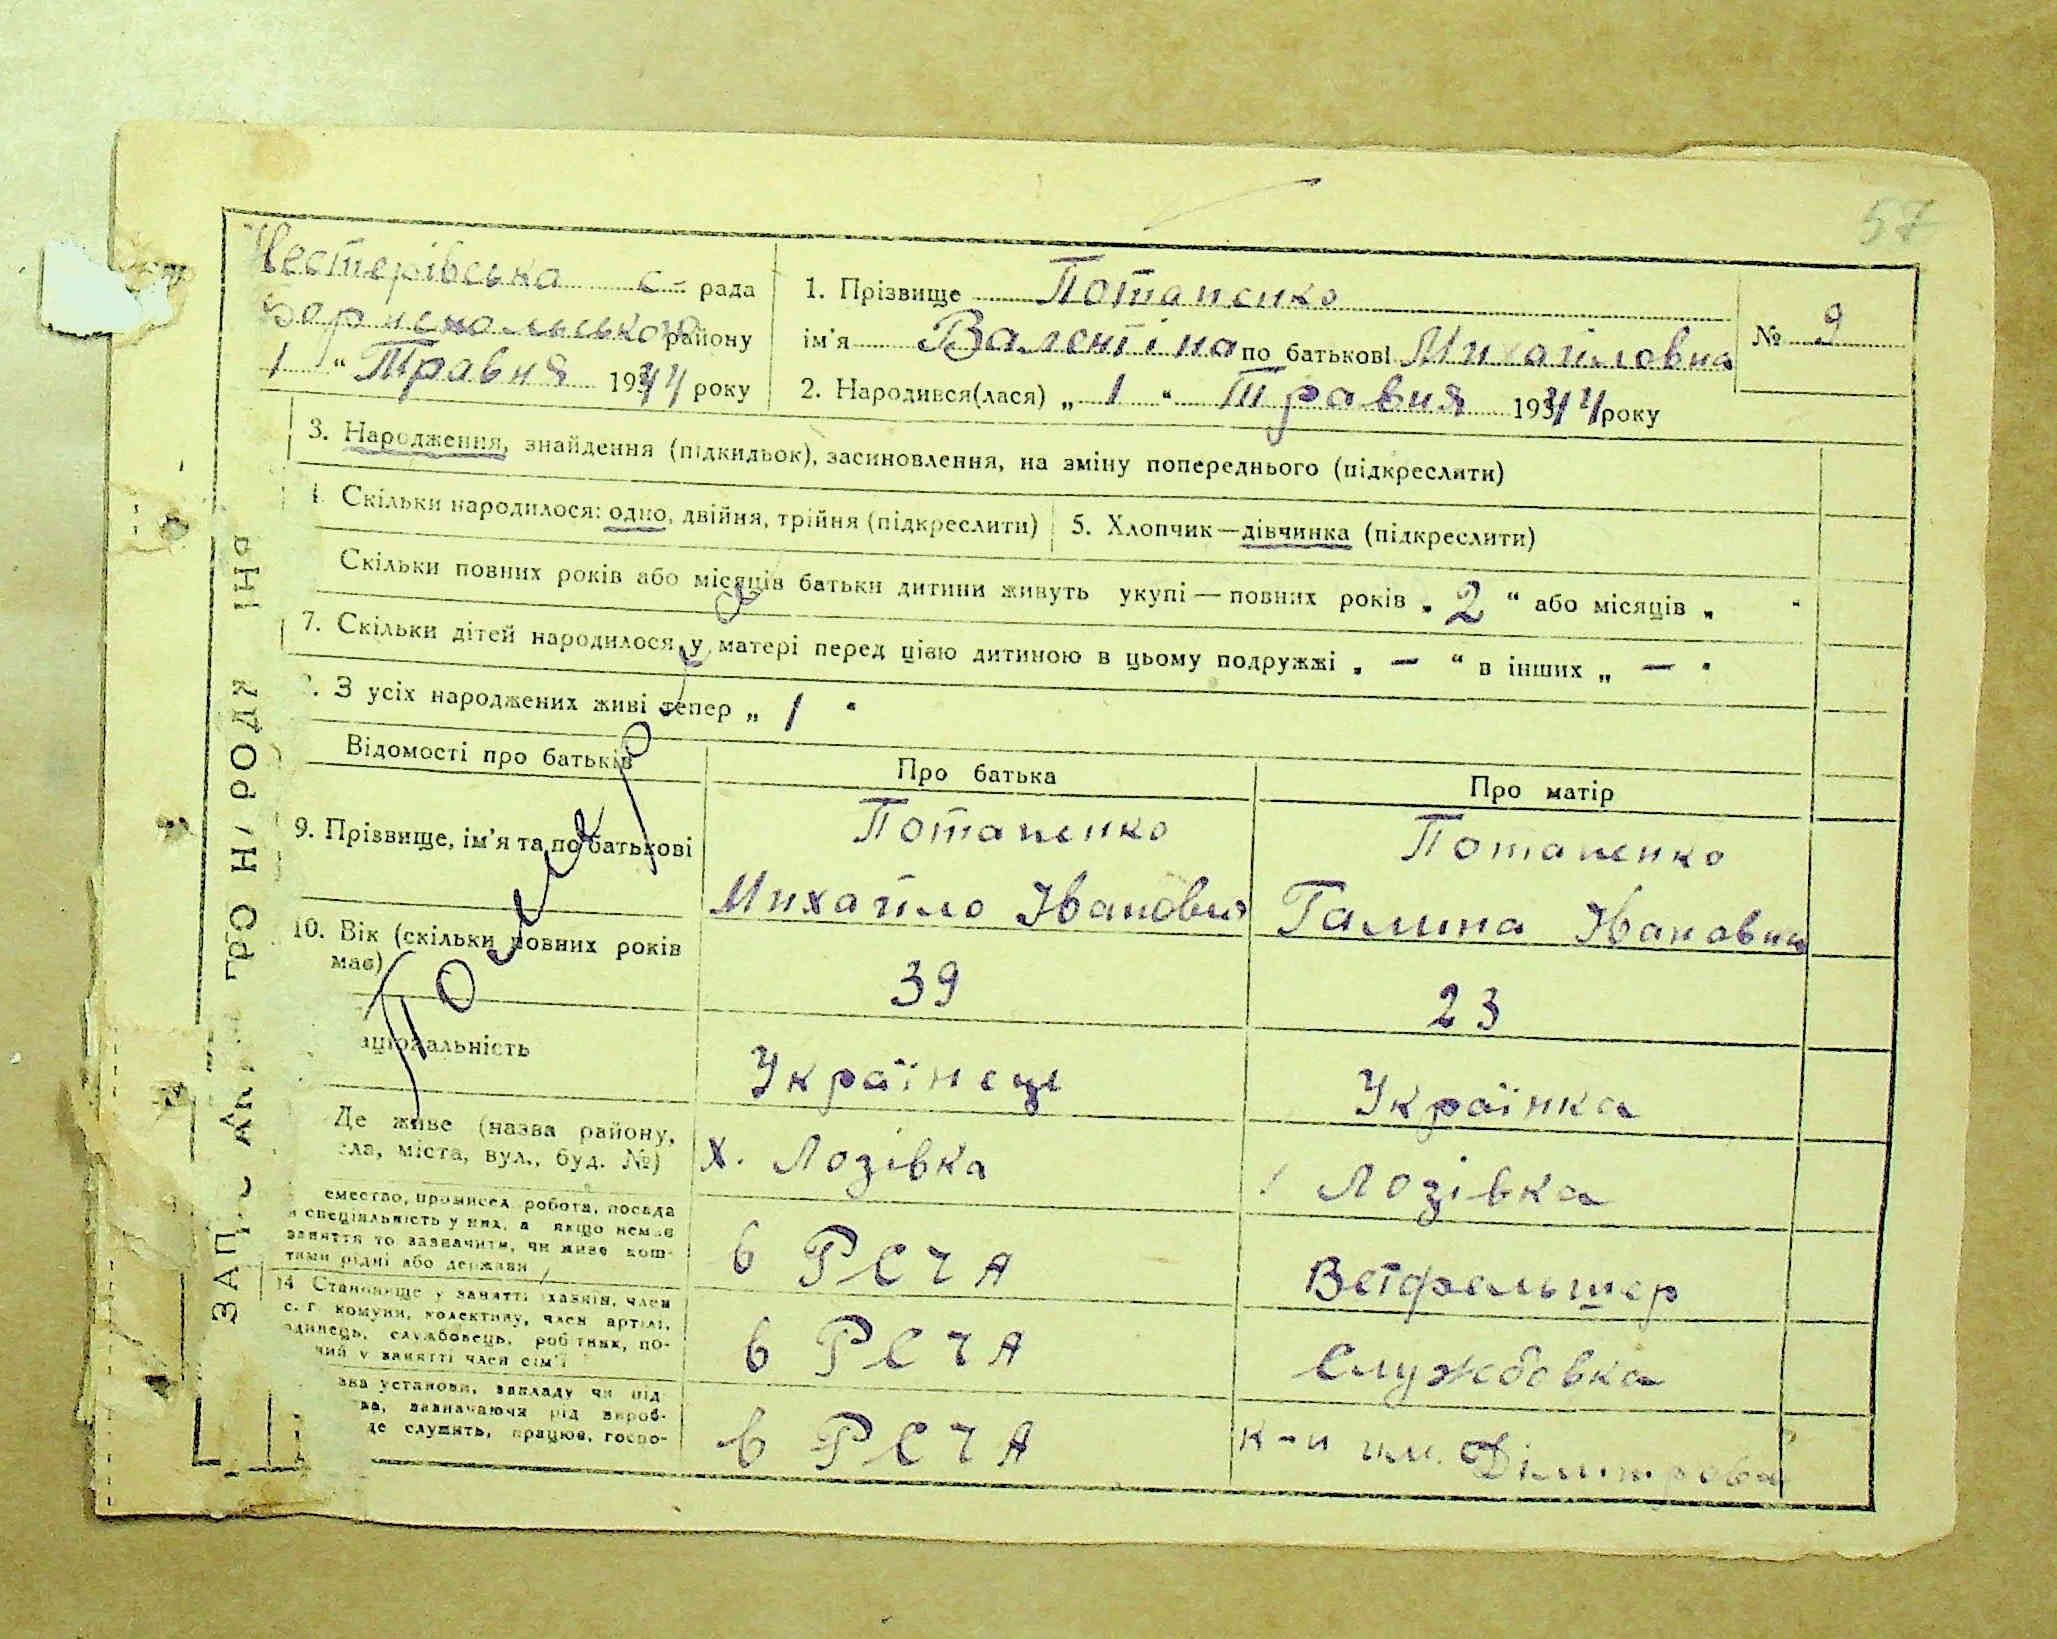 57
Нестерівська с- рада
Бориспольського району
1 " Травня 1944 року
1. Прізвище Потапенко
ім'я Валентіна по батькові Михайловна
№ 9
2. Народився(лася) „ 1 " Травня 1944 року
3. Народження, знайдення (підкидьок), засиновлення, на зміну попереднього (підкреслити)
4. Скільки народилося: одно, двійня, трійня (підкреслити)
5. Хлопчик—дівчинка (підкреслити)
Скільки повних років або місяців батьки дитини живуть укупі — повних років „ 2 " або місяців „ "
7. Скільки дітей народилося у матері перед цією дитиною в цьому подружжі „ — " в інших „ — "
. З усіх народжених живі тепер „ 1 "
Відомості про батьків
Про батька
Про матір
9. Прізвище, ім'я та по батькові
Потапенко
Михайло Іванович
Потапенко
Галина Івановна
10. Вік (скільки повних років
має)
39
23
аціональність
Українець
Українка
Де живе (назва району,
ела, міста, вул., буд. №)
х. Лозівка
Лозівка
емество, промисел, робота, посада
и спеціяльність у них, а якщо немає
заняття то зазначити, чи живе кош-
тами рідні або держави
в РСЧА
Ветфельшер
14 Становище у занятті хазяїн, член
с. г. комуни, колективу, член артілі,
одинець, службовець, робітник, по-
чий у занятті член сім'ї
в РСЧА
Службовка
зва установи, закладу чи під
ва, зазначаючи рід вироб-
де служить, працює, госпо-
в РСЧА
к-п им. Дімитрова
ЗАПИС АКТ ПРО НАРОДЖ ІНЯ
Помер